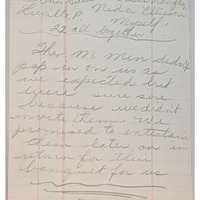 Lucille P.
Myself.
22 all together
The M Men didn't
pop in on us as
we expected but
were sure sore
because we didn't
invite them. We
promised to entertain
them later on in
return for their
banquet for us